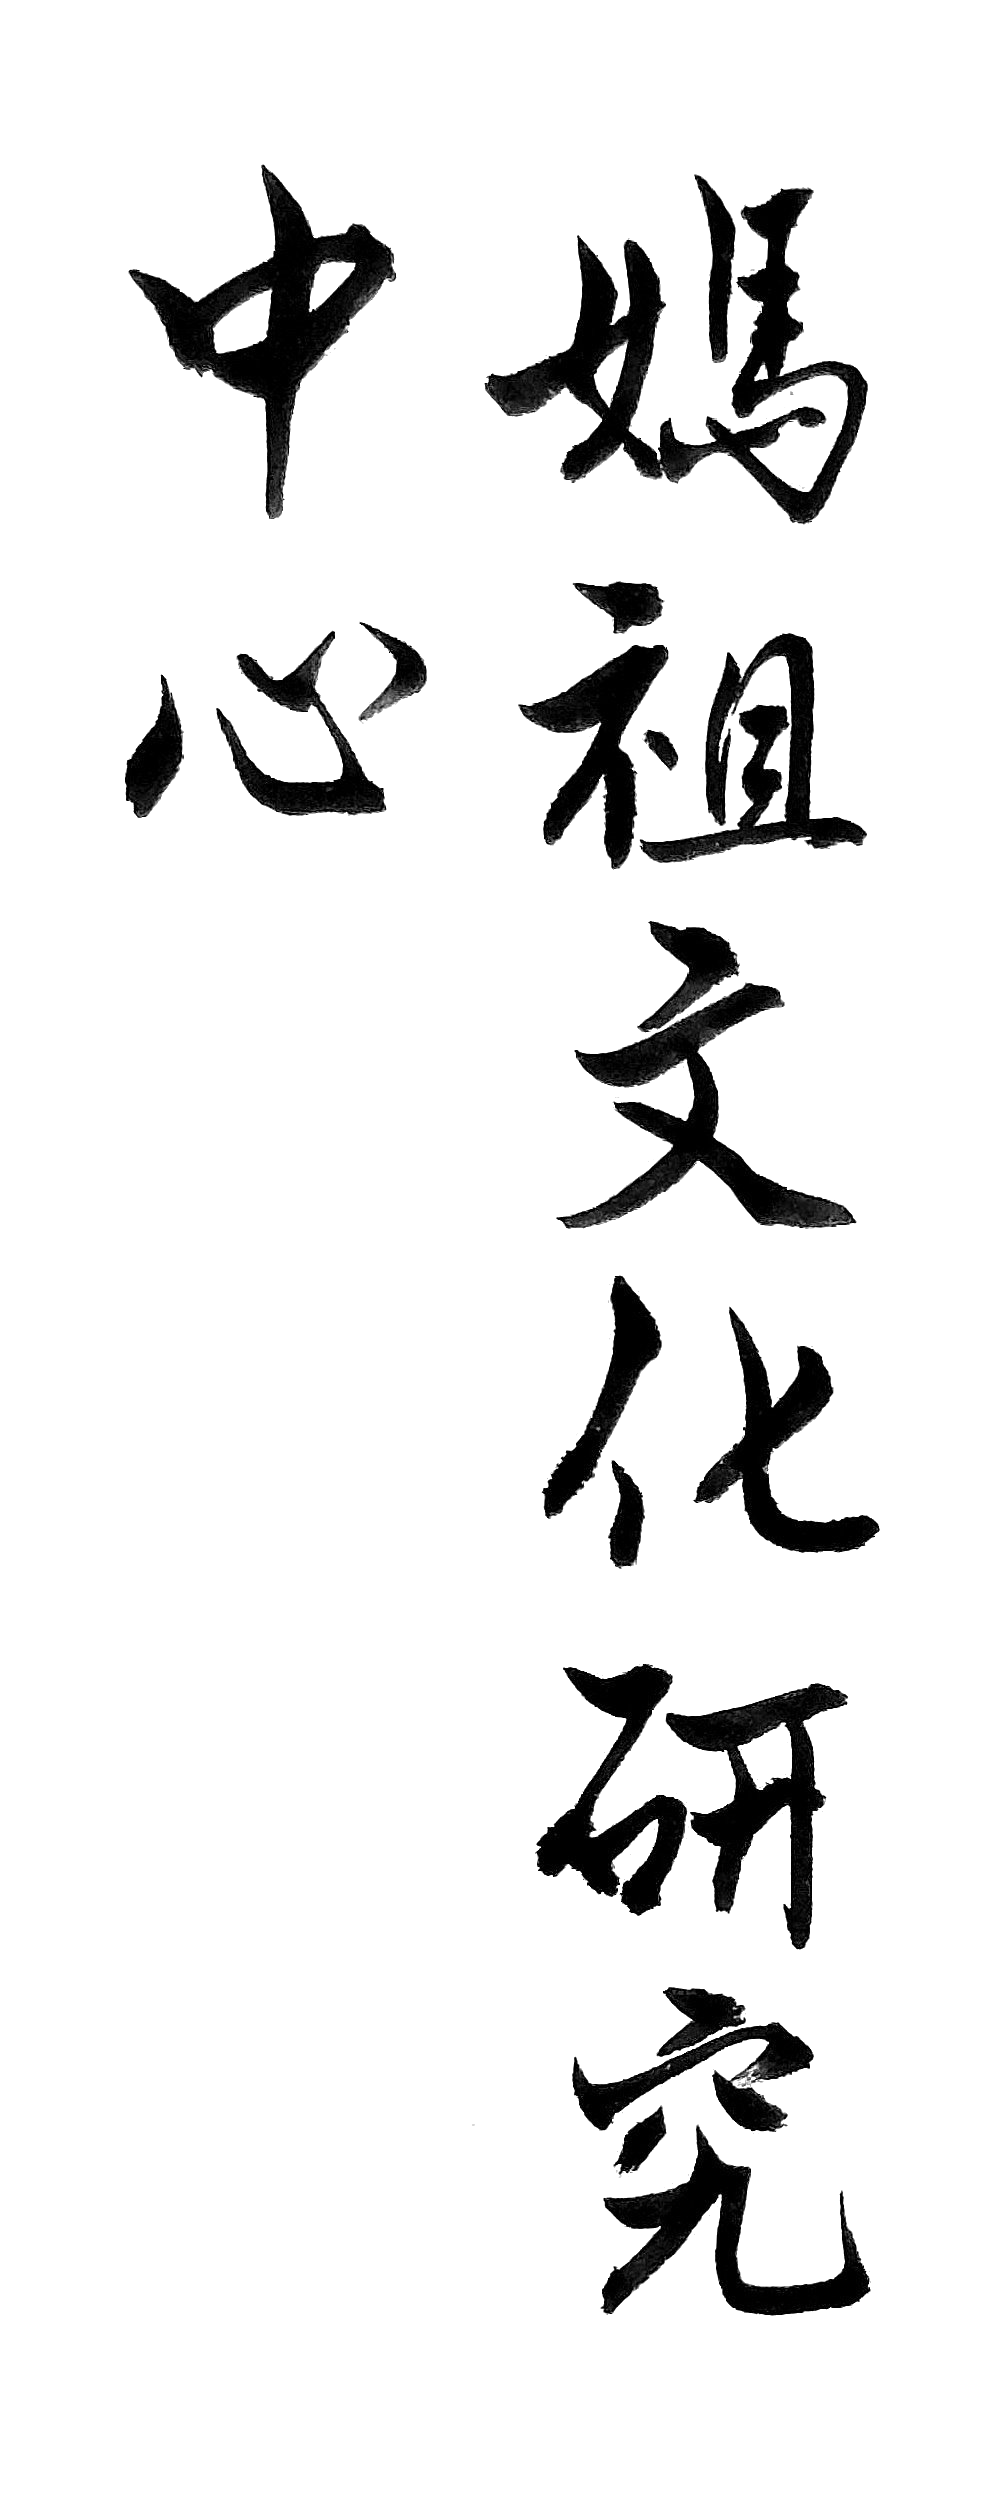 媽祖文化研究
中心